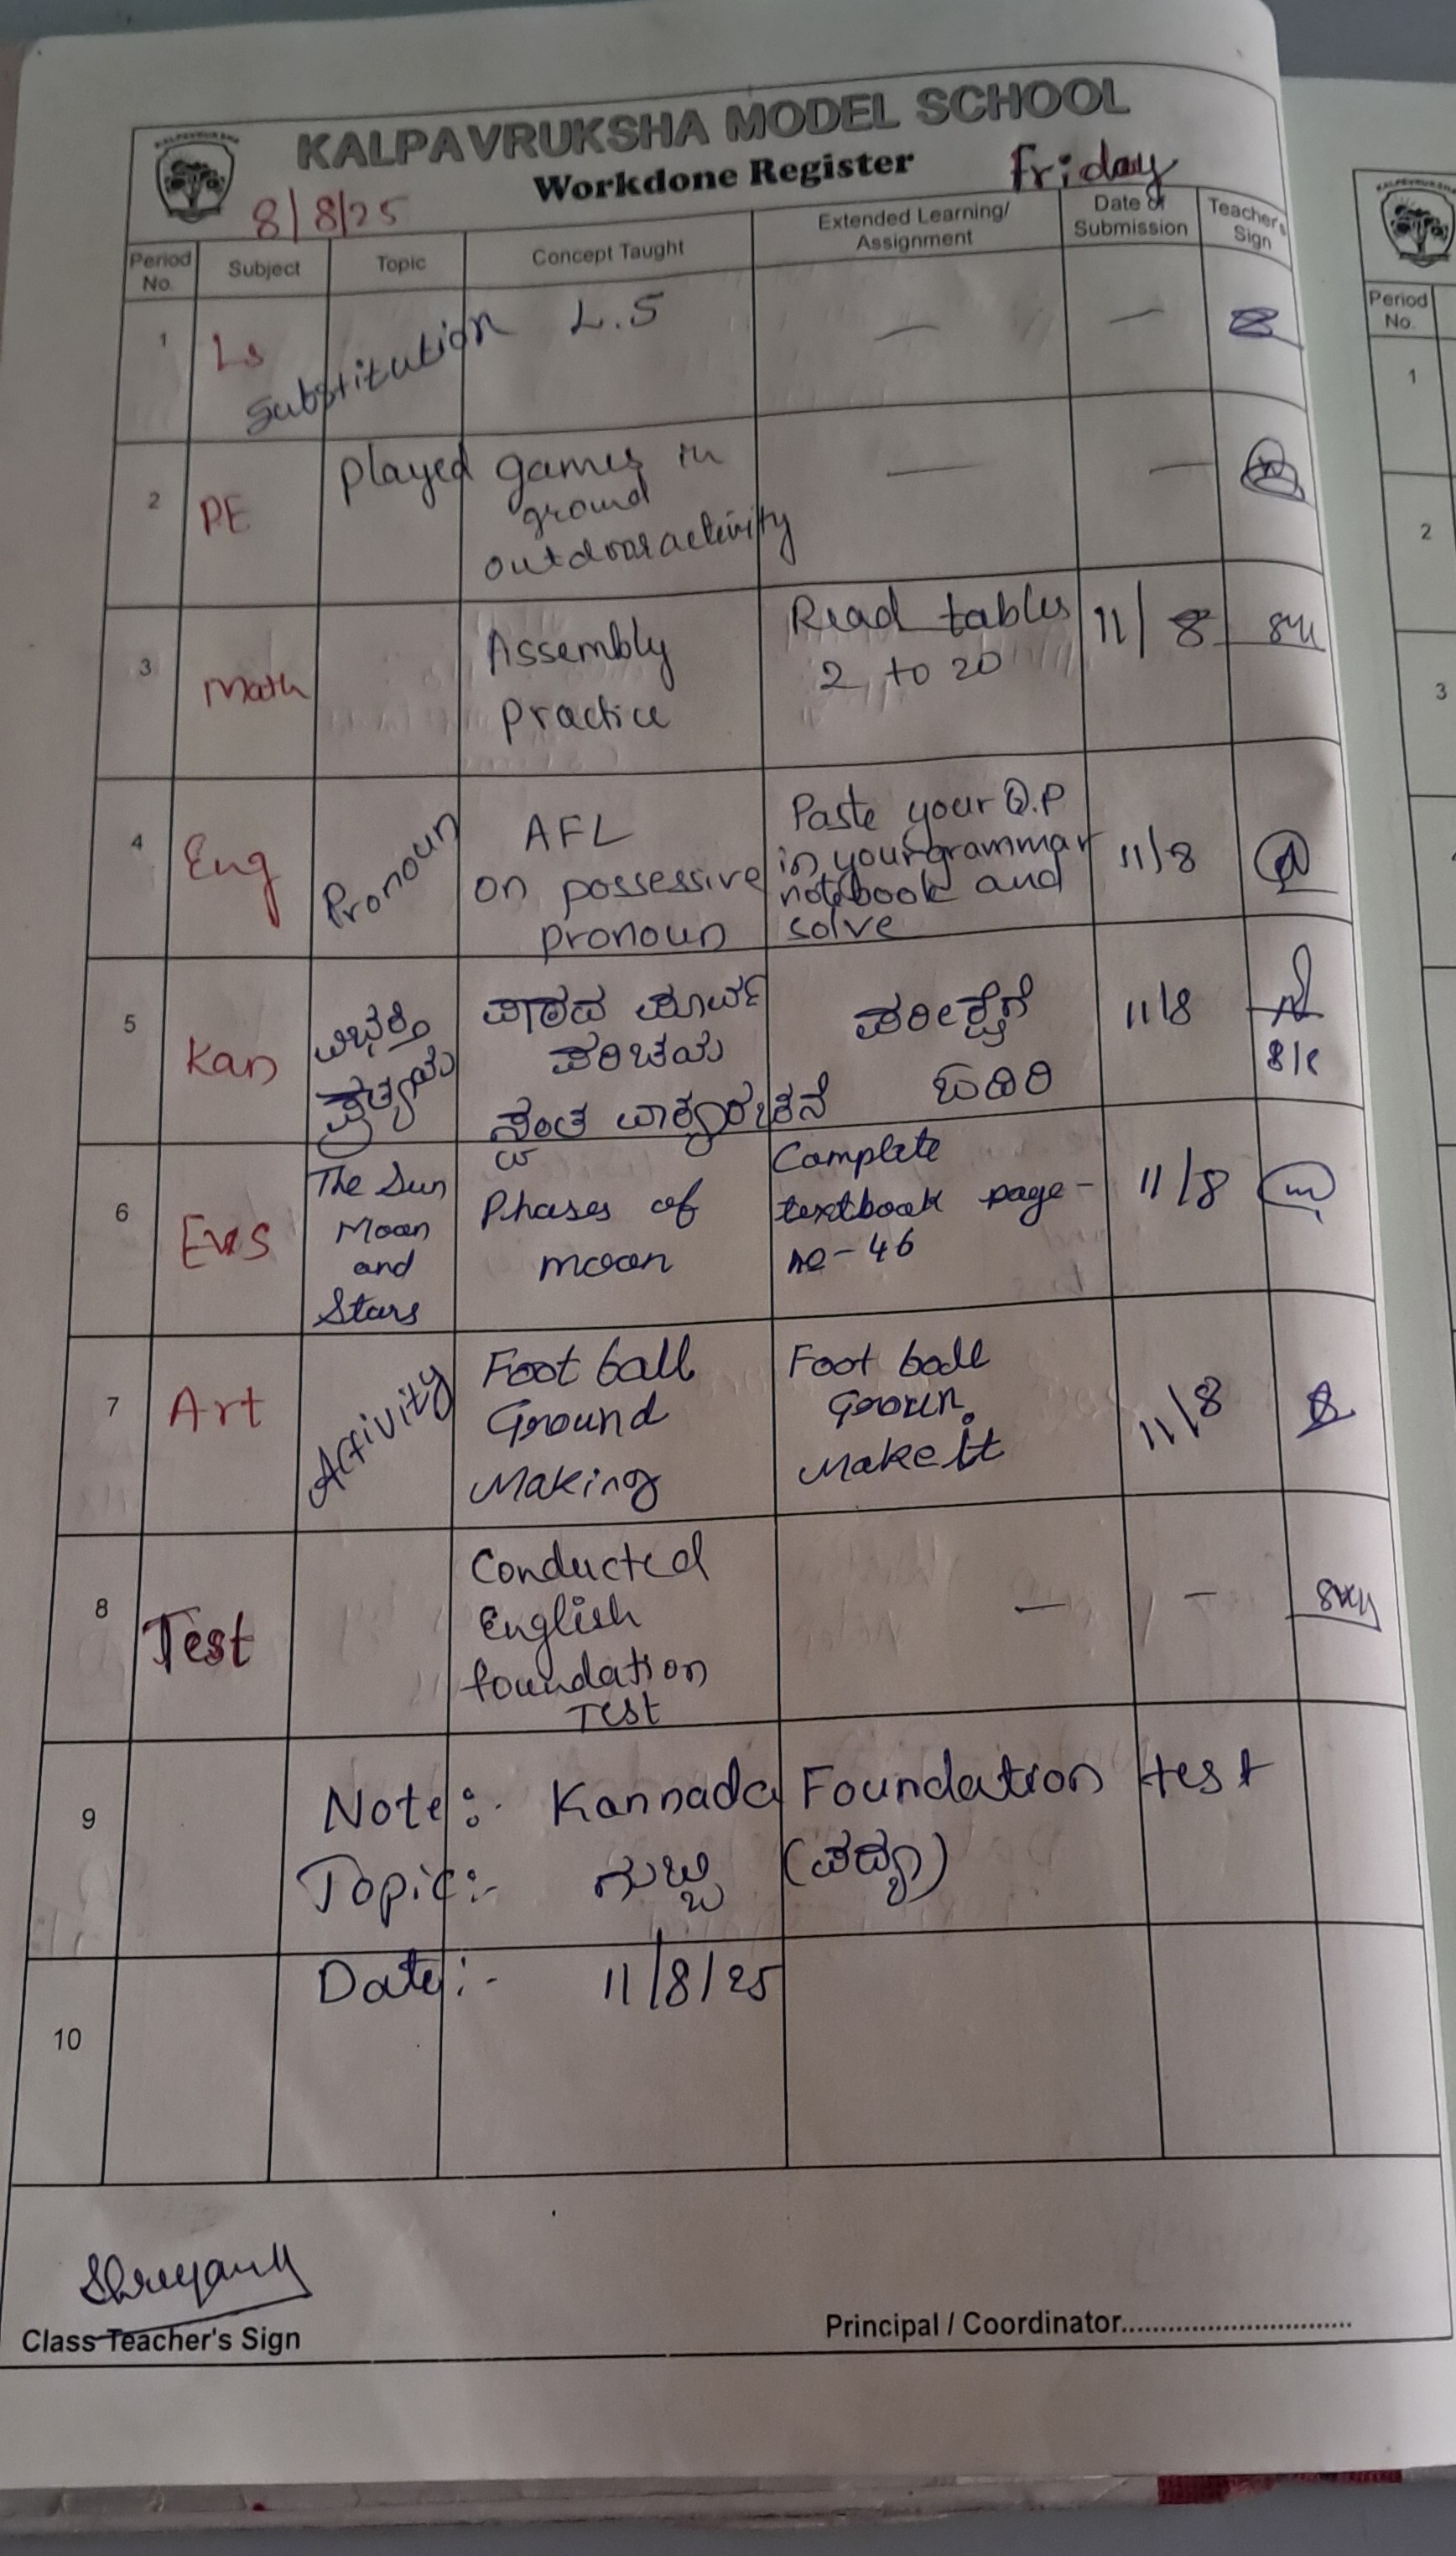 KALPAVRUKSHA MODEL SCHOOL
Workdone Register
Friday
8/8/25
Period No.
Subject
Topic
Concept Taught
Extended Learning/ Assignment
Date of Submission
Teacher's Sign
1
Ls
Substitution
L.S
—
—
2
PE
played games in
ground
outdoor activity
—
—
3
Math
Assembly
Practice
Read tables
2 to 20
11/8
4
Eng
Pronoun
AFL
on possessive
pronoun
Paste your Q.P
in your grammar
notebook and
solve
11/8
5
Kan
ವಿಭಕ್ತಿ
ಪ್ರತ್ಯಯ
ಪಾಠದ ಪೂರ್ವ
ಪರಿಚಯ
ಸ್ವಂತ ವಾಕ್ಯರಚನೆ
ಪರೀಕ್ಷೆಗೆ
ಓದಿರಿ
11/8
6
EVS
The Sun
Moon
and
Stars
Phases of
moon
Complete
textbook page-
no-46
11/8
7
Art
Activity
Foot ball
Ground
Making
Foot ball
Groun.
Make it
11/8
8
Test
Conducted
English
foundation
Test
—
—
9
Note:- Kannada Foundation test
Topic:- ಗುಬ್ಬಿ (ಪದ್ಯ)
10
Date:- 11/8/25
Class Teacher's Sign
Principal / Coordinator..............................
Period No.
1
2
3